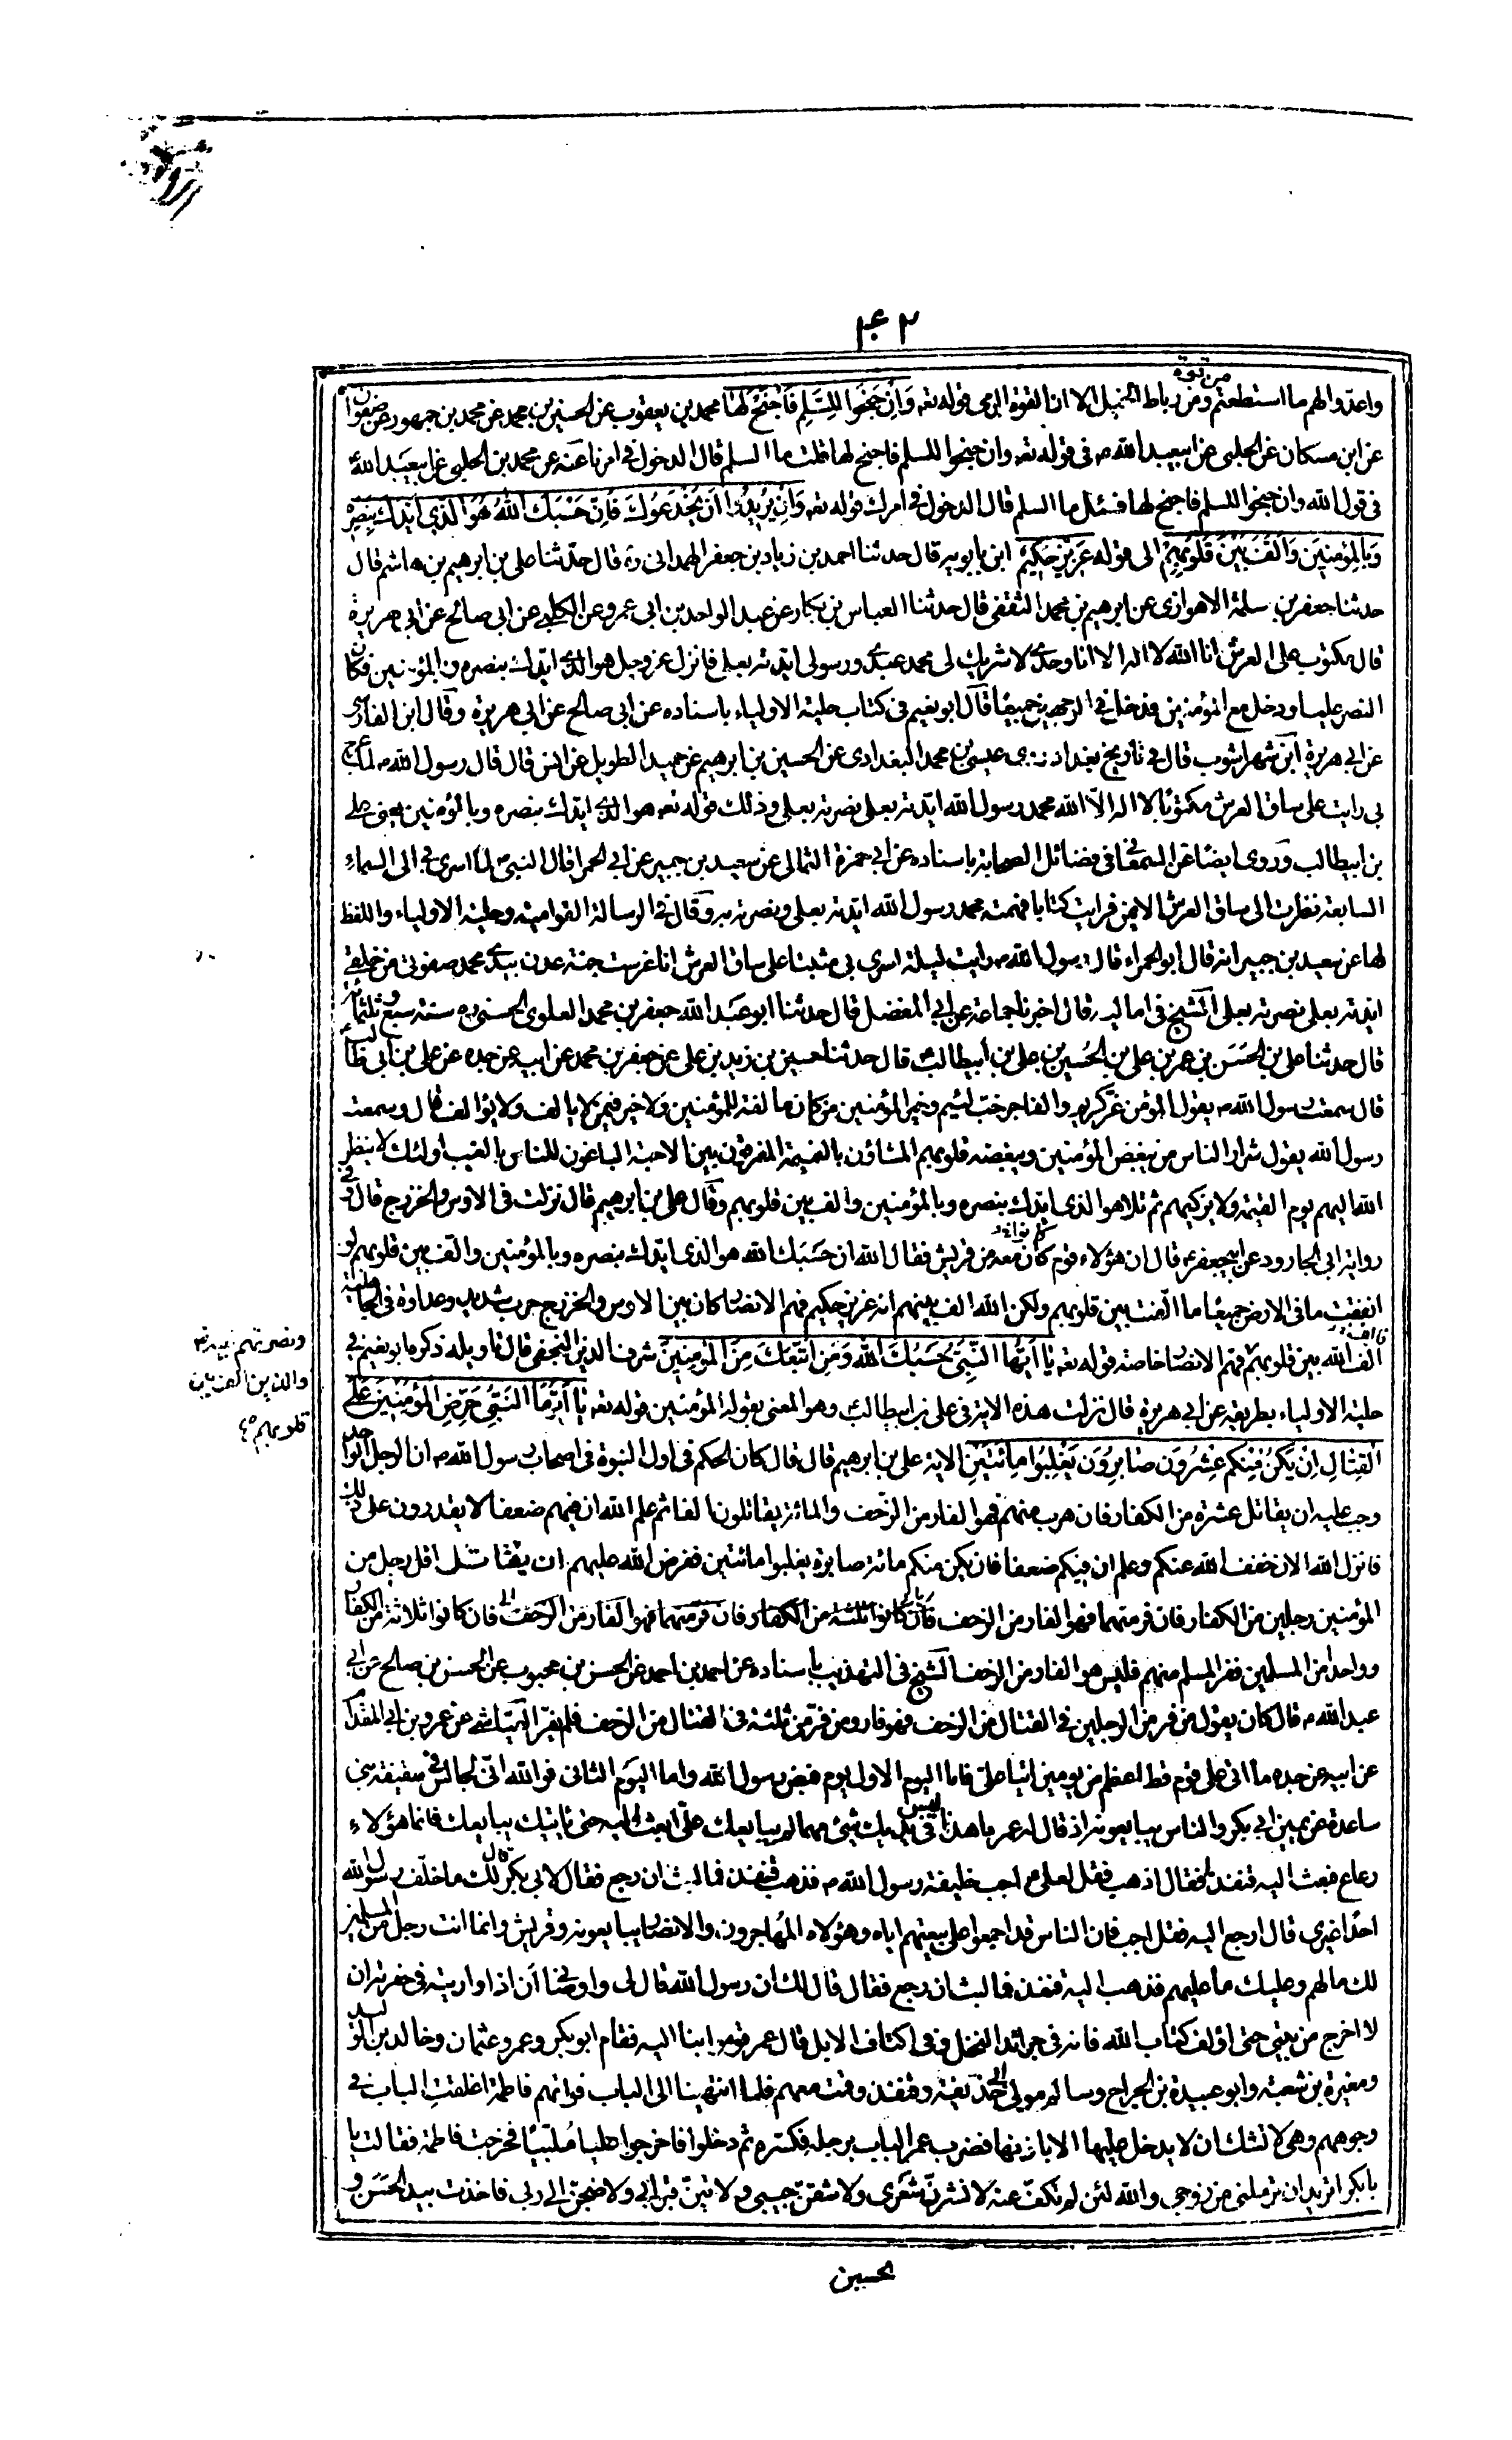 ٤٠٢
واعدوا لهم ما استطعتم من قوة ومن رباط الخيل الا ان القوة الرمى قوله تعه وَاِنْ جَنَحُوا لِلسَّلِمْ فَاجْنَحْ لَهٰا محمد بن يعقوب عن الحسين بن محمد عن محمد بن جمهور عن صفوان
عن ابن مسكان عن الحلبى عن ابيعبد الله م فى قوله تعه وان جنحوا للسلم فاجنح لها قلت ما السلم قال الدخول فى امرنا عنه عن محمد بن الحلبى عن ابيعبد الله
فى قول الله وان جنحوا للسلم فاجنح لها فسئل ما السلم قال الدخول فى امرك قوله تعه وَاِنْ يُرِيدُوا اَنْ يَخْدَعُوكَ فَاِنَّ حَسْبَكَ اللهُ هُوَ الَّذِي اَيَّدَكَ بِنَصْرِهِ
وَبِالْمُؤْمِنِينَ وَاَلَّفَ بَيْنَ قُلُوبِهِمْ الى قوله عَزِيزٌ حَكِيمٌ ابن بابويه قال حدثنا احمد بن زياد بن جعفر الهمدانى ره قال حدثنا على بن ابرهيم بن هاشم قال
حدثنا جعفر بن سلمة الاهوازى عن ابرهيم بن محمد الثقفى قال حدثنا العباس بن بكار عن عبد الواحد بن ابى عمرو عن الكلبى عن ابى صالح عن ابى هريرة
قال مكتوب على العرش انا الله لا اله الا انا وحدى لا شريك لى محمد عبدى ورسولى ايدته بعلى فانزل عز وجل هو الذى ايدك بنصره وبالمؤمنين فكان
النصر عليا ودخل مع المؤمنين فدخل فى الوجهين جميعًا قال ابو نعيم فى كتاب حلية الاولياء باسناده عن ابى صالح عن ابى هريرة وقال ابن الفارسى
عن ابى هريرة ابن شهراشوب قال فى تاريخ بغداد روى عيسى بن محمد البغدادى عن الحسين بن ابرهيم عن حميد الطويل عن انس قال قال رسول الله م لما عرج
بى رايت على ساق العرش مكتوبًا لا اله الا الله محمد رسول الله ايدته بعلى نصرته بعلى وذلك قوله تعه هو الذى ايدك بنصره وبالمؤمنين يعنى على
بن ابيطالب وروى ايضًا عن السمعانى فى فضائل الصحابة باسناده عن ابى حمزة الثمالى عن سعيد بن جبير عن ابى الحمرا قال النبى م لما اسرى بى الى السماء
السابعة نظرت الى ساق العرش الايمن فرايت كتابا فهمته محمد رسول الله ايدته بعلى ونصرته به وقال فى الرسالة القوامية وحلية الاولياء واللفظ
لها عن سعيد بن جبير انه قال ابو الحمراء قال رسول الله م رايت ليلة اسرى بى مثبتا على ساق العرش انا غرست جنة عدن بيدى محمد صفوتى من خلقى
ايدته بعلى نصرته بعلى الشيخ فى اماليه قال اخبرنا جماعة عن ابى المفضل قال حدثنا ابو عبد الله جعفر بن محمد العلوى الحسنى ره سنة سبع وثلثمائة
قال حدثنا على بن الحَسَن بن عمر بن على بن الحُسين بن على بن ابيطالب قال حدثنا حسين بن زيد بن على عن جعفر بن محمد عن ابيه عن جده عن على بن ابى طالب
قال سمعت رسول الله م يقول المؤمن غر كريم والفاجر خب لئيم وخير المؤمنين من كان مالفة للمؤمنين ولا خير فيمن لا يالف ولا يؤالف قال وسمعت
رسول الله يقول شرار الناس من يبغض المؤمنين ويبغضه قلوبهم المشاؤن بالنميمة المفرقون بين الاحبة الباغون للناس بالعيب اولئك لا ينظر
الله اليهم يوم القيمة ولا يزكيهم ثم تلا هو الذى ايدك بنصره وبالمؤمنين والف بين قلوبهم وقال على بن ابرهيم قال نزلت فى الاوس والخزرج قال وفى
رواية ابى الجارود عن ابيجعفر م قال ان هؤلاء قوم كانوا معه من قريش فقال الله ان حَسْبَك الله هو الذى ايدك بنصره وبالمؤمنين والف بين قلوبهم لو
انفقت ما فى الارض جميعًا ما الفت بين قلوبهم ولكن الله الف بينهم انه عزيز حكيم فهم الانصار كان بين الاوس والخزرج حرب شديد وعداوة فى الجاهلية
فالف الله بين قلوبهم فهم الانصار خاصة قوله تعه يٰا اَيُّهَا النَّبِيُّ حَسْبُكَ اللهُ وَمَنِ اتَّبَعَكَ مِنَ الْمُؤْمِنِينَ شرف الدين النجفى قال تاويله ذكره ابو نعيم فى
حلية الاولياء بطريقه عن ابى هريرة قال نزلت هذه الاية فى على بن ابيطالب وهو المعنى بقوله المؤمنين قوله تعه يٰا اَيُّهَا النَّبِيُّ حَرِّضِ الْمُؤْمِنِينَ عَلَى
الْقِتٰالِ اِنْ يَكُنْ مِنْكُمْ عِشْرُونَ صٰابِرُونَ يَغْلِبُوا مِائَتَيْنِ الاية على بن ابرهيم قال قال كان الحكم فى اول النبوة فى اصحاب رسول الله م ان الرجل الواحد
وجب عليه ان يقاتل عشرة من الكفار فان هرب منهم فهو الفار من الزحف والمائة يقاتلون الفا ثم علم الله ان فيهم ضعفا لا يقدرون على ذلك
فانزل الله الان خفف الله عنكم وعلم ان فيكم ضعفا فان يكن منكم مائة صابرة يغلبوا مائتين ففرض الله عليهم ان يقاتل اقل رجل من
المؤمنين رجلين من الكفار فان فر منهما فهو الفار من الزحف فان كانوا ثلثة من الكفار فان فر منهما فهو الفار من الزحف فان كانوا ثلاثة من الكفار
وواحد من المسلمين ففر المسلم منهم فليس هو الفار من الزحف الشيخ فى التهذيب باسناده عن احمد بن احمد عن الحسن بن محبوب عن الحسن بن صالح عن ابى
عبد الله م قال كان يقول من فر من الرجلين فى القتال من الزحف فهو فار ومن فر من ثلثة فى القتال من الزحف فلم يفر العياشى عن عمرو بن ابى المقدام
عن ابيه عن جده ما اتى على قوم قط اعظم من يومين اتيا على فاما اليوم الاول يوم قبض رسول الله واما اليوم الثانى فوالله انى لجالس فى سقيفة بنى
ساعدة عن يمين ابى بكر والناس يبايعونه اذ قال له عمر يا هذا ليس فى يديك شئ مهما لم يبايعك على ابعث اليه حتى ياتيك يبايعك فانما هؤلاء
رعاع فبعث اليه قنفذ فقال اذهب فقل لعلى م اجب خليفة رسول الله م فذهب قنفذ فما لبث ان رجع فقال لابى بكر قال لك ما خلف رسول الله
احدًا غيرى قال ارجع اليه فقل اجب فان الناس قد اجمعوا على بيعتهم اياه وهؤلاء المُهاجرون والانصار يبايعونه وقريش وانما انت رجل من المسلمين
لك ما لهم وعليك ما عليهم فذهب اليه قنفذ فما لبث ان رجع فقال قال لك ان رسول الله قال لى واوصانى اَن اذا واريته فى حفرته ان
لا اخرج من بيتى حتى اؤلف كتاب الله فانه فى جرائد النخل وفى اكتاف الابل قال عمر قوموا بنا اليه فقام ابو بكر وعمر وعثمان وخالد بن الوليد
ومغيرة بن شعبة وابو عبيدة بن الجراح وسالم مولى ابى حذيفة وقنفذ وقمت معهم فلما انتهينا الى الباب فراتهم فاطمة اغلقت الباب فى
وجوههم وهى لا تشك ان لا يدخل عليها الا باذنها فضرب عمر الباب برجله فكسره ثم دخلوا فاخرجوا عليا مُلببًا فخرجت فاطمة فقالت يا
بابكر اتريد ان ترملنى من زوجى والله لئن لم تكف عنه لانشرن شعرى ولاشقن جيبى ولاتين قبر ابى ولاصيحن الى ربى فاخذت بيد الحَسَن و
ونصرتهم
والذين الف بين
قلوبهم
لحسين